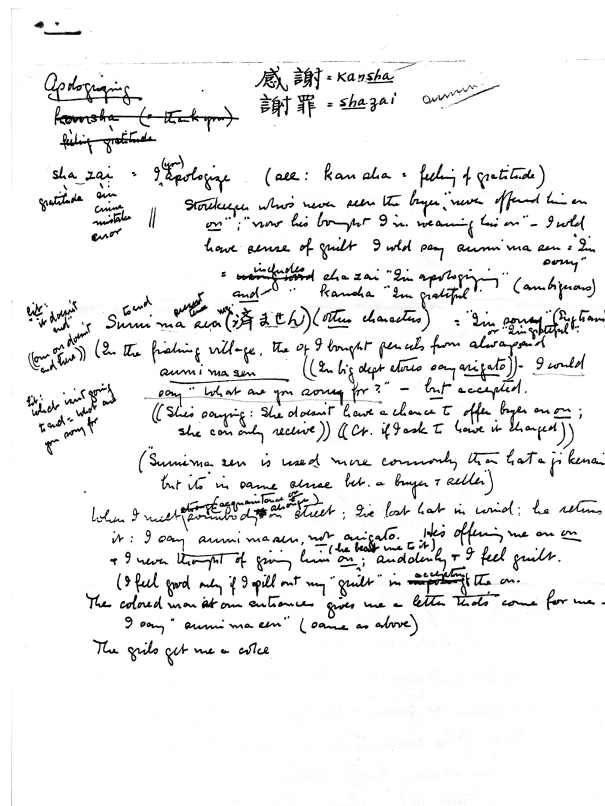 Apologizing
感謝 = kansha
kansha (= thank you)
謝罪 = shazai
feeling gratitude
sumim
sha zai = I (you) apologize (see: kansha = feeling of gratitude)
gratitude sin
crime
mistake
error
|| Storekeeper who's never seen the buyer, "never offered him an
on"; "now his bought I'm wearing his on" – I wold
have sense of guilt I wold say sumimasen = "I'm
sorry"
= includes shazai "I'm apologizing" (ambiguous)
and kansha "I'm grateful"
lit:
"it doesn't
end"
((our on doesn't
end here))
to end present tense neg
Sumi ma sen (済ません) (other characters) = "I'm sorry" (Eng trans)
or "I'm grateful"
(In the fishing village, the of I bought pencils from always said
sumimasen ((In big dept stores say arigato)) – I would
say "What are you sorry for?" – but accepted.
lit:
what isn't going
to end = what are
you sorry for
((She's saying: She doesn't have a chance to offer buyer an on;
she can only receive)) ((Cf. if I ask to have it charged))
("Sumimasen is used more commonly than katajikenai
but its in same sense bet. a buyer & seller)
When I meet somebody (acquaintance or stranger) on street; I've lost hat in wind; he returns
it: I say sumimasen, not arigato. He's offering me an on
& I never thought of giving him on (he beat me to it); suddenly & I feel guilt.
(I feel good only if I spill out my "guilt" in accepting the on.
The colored man at our entrance gives me a letter that's come for me –
I say "sumimasen" (same as above)
The girls get me a coke